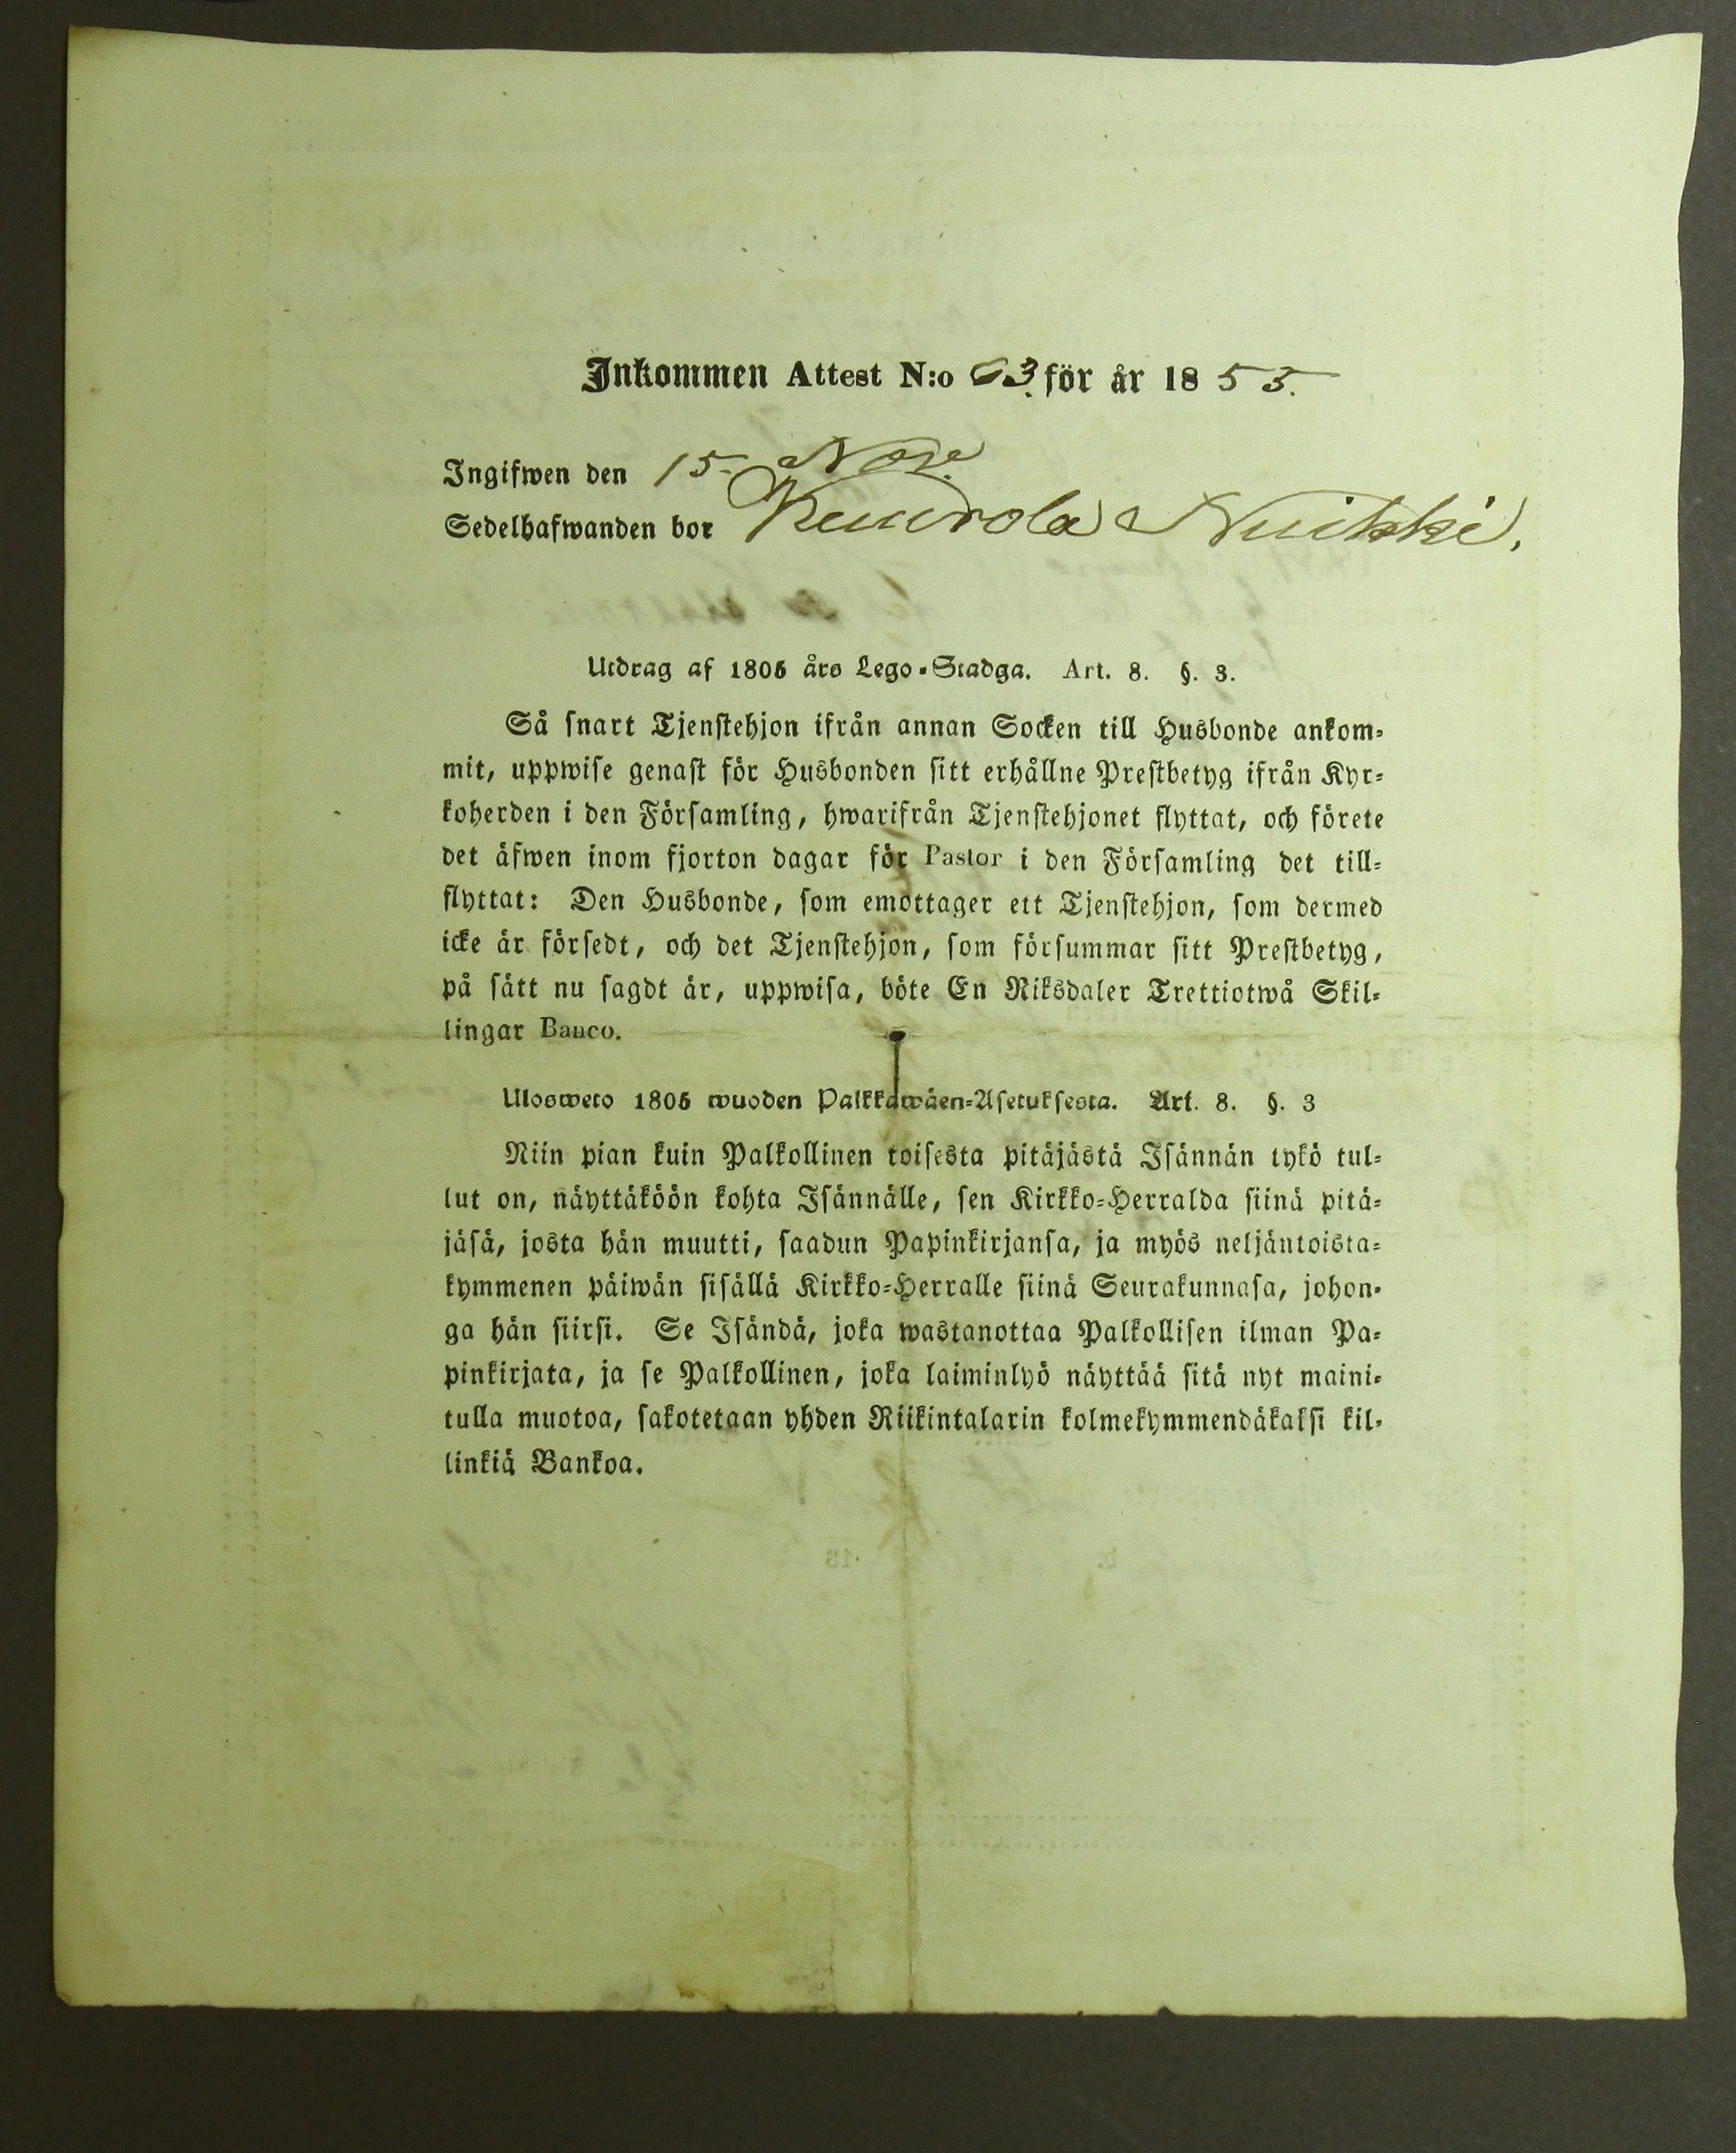 Inkommen Attest N:o 63. för år 1855.
Ingifwen den 15. Nov.
Sedelhafwanden bor Keurola Nuikki.
Utdrag af 1805 års Lego-Stadga. Art. 8. §. 3.
Så snart Tjenstehjon ifrån annan Socken till Husbonde ankom-
mit, uppwise genast för Husbonden sitt erhållne Prestbetyg ifrån Kyr-
koherden i den Församling, hwarifrån Tjenstehjonet flyttat, och förete
det äfwen inom fjorton dagar för Pastor i den Församling det till-
flyttat: Den Husbonde, som emottager ett Tjenstehjon, som dermed
icke är försedt, och det Tjenstehjon, som försummar sitt Prestbetyg,
på sätt nu sagdt är, uppwisa, böte En Riksdaler Trettiotwå Skil-
lingar Banco.
Ulosweto 1805 wuoden Palkkawäen-Asetuksesta. Art. 8. §. 3
Niin pian kuin Palkollinen toisesta pitäjästä Isännän tykö tul-
lut on, näyttäköön kohta Isännälle, sen Kirkko-Herralda siinä pitä-
jäsä, josta hän muutti, saadun Papinkirjansa, ja myös neljäntoista-
kymmenen päiwän sisällä Kirkko-Herralle siinä Seurakunnasa, johon-
ga hän siirsi. Se Isändä, joka wastanottaa Palkollisen ilman Pa-
pinkirjata, ja se Palkollinen, joka laiminlyö näyttää sitä nyt maini-
tulla muotoa, sakotetaan yhden Riikintalarin kolmekymmendäkaksi kil-
linkiä Bankoa.